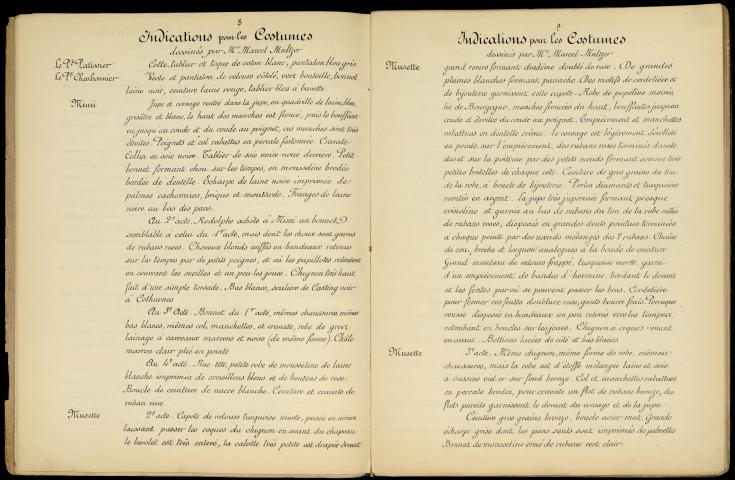 8
Indications pour les Costumes
dessinés par Mr Marcel Multzer
Le Pt Patissier Cotte, tablier et toque de coton blanc, pantalon bleu gris
Le Pt Charbonnier Veste et pantalon de velours côtelé, vert bouteille, bonnet
laine noir, ceinture laine rouge, tablier bleu à bavette.
Mimi Jupe et corsage rentré dans la jupe, en quadrillé de laine, bleu,
grisâtre et blanc, le haut des manches est froncé, puis le bouffant
va jusqu'au coude et du coude au poignet, ces manches sont très
étroites. Poignets et col rabattus en percale festonnée. Cravate
Collin en soie noire. Tablier de soie noire noué derrière. Petit
bonnet formant chou sur les tempes, en mousseline brodée
bordée de dentelle. Echarpe de laine noire imprimée de
palmes cachemires, brique et moutarde. Franges de laine
noire au bas des pans.
Au 2e acte. Rodolphe achète à Mimi un bonnet
semblable à celui du 1er acte, mais dont les choux sont garnis
de rubans roses. Cheveux blonds coiffés en bandeaux retenus
sur les tempes par de petits peignes, et où les papillotes retombent
en couvrant les oreilles et un peu les joues. Chignon très haut
fait d'une simple torsade. Bas blancs, souliers de Casting noir
à Cothurnes
Au 3e Acte. Bonnet du 1er acte, mêmes chaussures, mêmes
bas blancs, mêmes col, manchettes, et cravate, robe de gros
lainage à carreaux marrons et noirs (de même forme). Châle
marron clair plié en pointe
Au 4e acte. Nue tête, petite robe de mousseline de laine
blanche imprimée de croisillons bleus et de boutons de rose.
Boucle de ceinture de nacre blanche. Ceinture et cravate de
ruban rose
Musette 2e acte. Capote de velours turquoise morte, posée en arrière
laissant passer les coques du chignon en avant du chapeau
le bavolet est très enlevé, la calotte très petite est drapée devant
9
Indications pour les Costumes
dessinés par Mr Marcel Multzer
Musette grand revers formant diadème doublé de rose. De grandes
plumes blanches formant panache. Des motifs de cordelière et
de bijouterie garnissent cette capote. Robe de popeline moirée,
lie de Bourgogne, manches froncées du haut, bouffantes jusqu'au
coude et étroites du coude au poignet. Empiècement et manchettes
rabattus en dentelle crème. Le corsage est légèrement décolleté
en pointe sur l'empiècement, des rubans roses terminés dans le
dos et sur la poitrine par des petits nœuds forment comme trois
petites bretelles de chaque côté. Ceinture de gros grains du ton
de la robe, à boucle de bijouterie. Perles diamants et turquoises
montés en argent. La jupe très juponnée formant presque
crinoline et garnie au bas de rubans du ton de la robe mêlés
de rubans roses, disposés en grandes dents pointues terminées
à chaque pointe par des nœuds mélangés des 2 rubans. Chaîne
de cou, broche et lorgnon analogues à la boucle de ceinture
Grand manteau de velours frappé, turquoise morte, garni
d'un empiècement de bandes d'hermine, bordant le devant
et les fentes par où se peuvent passer les bras. Cordelière
pour fermer ces fentes doublure rose, gants beurre frais. Perruque
rousse disposée en bandeaux un peu relevés vers les tempes
retombant en boucles sur les joues. Chignon à coques venant
en avant. Bottines lacées de côté et bas blancs
Musette 3e acte. Même chignon, même forme de robe, mêmes
chaussures, mais la robe est d'étoffe mélangée laine et soie
à dessins vieil or sur fond bronze. Col et manchettes rabattues
en percale brodée, pour cravate un flot de rubans bronze, des
flots pareils garnissent le devant du corsage et de la jupe
Ceinture gros grains bronze, boucle acier mat. Grande
écharpe grise dont les pans seuls sont imprimés de palmettes
Bonnet de mousseline orné de rubans vert clair.